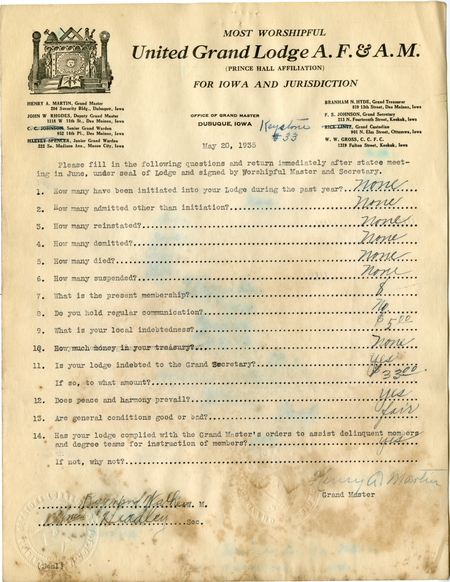 MOST WORSHIPFUL
United Grand Lodge A. F. & A. M.
(PRINCE HALL AFFILIATION)
FOR IOWA AND JURISDICTION
HENRY A. MARTIN, Grand Master
204 Security Bldg., Dubuque, Iowa
JOHN W RHODES, Deputy Grand Master
1116 W 11th St., Des Moines, Iowa
C. C. JOHNSON, Senior Grand Warden
Des Moines, Iowa
HARVEY SPENCER, Junior Grand Warden
222 So. Madison Ave., Mason City, Iowa
OFFICE OF GRAND MASTER
DUBUQUE, IOWA
BRANHAM N. HYDE, Grand Treasurer
819 13th Street, Des Moines, Iowa
F. S. JOHNSON, Grand Secretary
213 N. Fourteenth Street, Keokuk, Iowa
Grand Custodian
941 N. Elm Street, Ottumwa, Iowa
W. W. GROSS, C. C. F. C.
1319 Fulton Street, Keokuk, Iowa
Keystone
#33
May 20, 1935
Please fill in the following questions and return immediately after states meet-
ing in June, under seal of Lodge and signed by Worshipful Master and Secretary.
1. How many have been initiated into your Lodge during the past year? None
2. How many admitted other than initiation? None
3. How many reinstated? None
4. How many demitted? None
5. How many died? None
6. How many suspended? None
7. What is the present membership? 8
8. Do you hold regular communication? No
9. What is your local indebtedness? $5.00
10. How much money in your treasury? None
11. Is your lodge indebted to the Grand Secretary? Yes
If so, to what amount? $33.00
12. Does peace and harmony prevail? Yes
13. Are general conditions good or bad? fair
14. Has your lodge complied with the Grand Master's orders to assist delinquent members
and degree terms for instruction of members? yes
If not, why not?
Henry A Martin
Grand Master
W. M.
Sec.
(Seal)